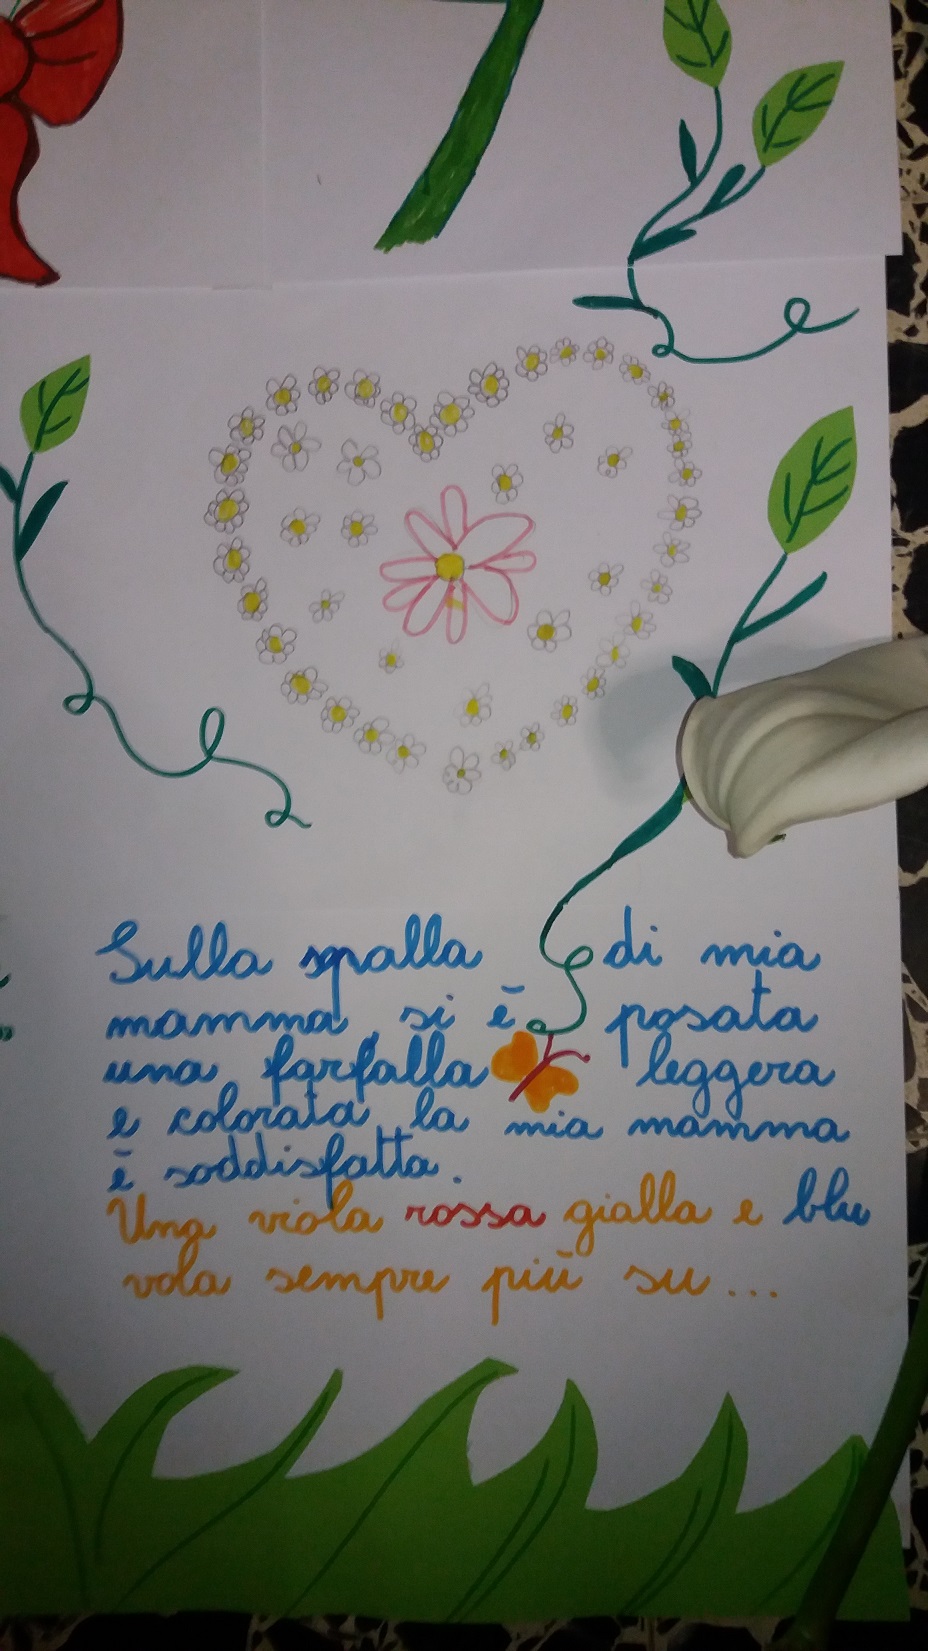 Sulla spalla di mia
mamma si è posata
una farfalla leggera
e colorata, la mia mamma
è soddisfatta.
Una viola rossa gialla e blu
vola sempre più su...